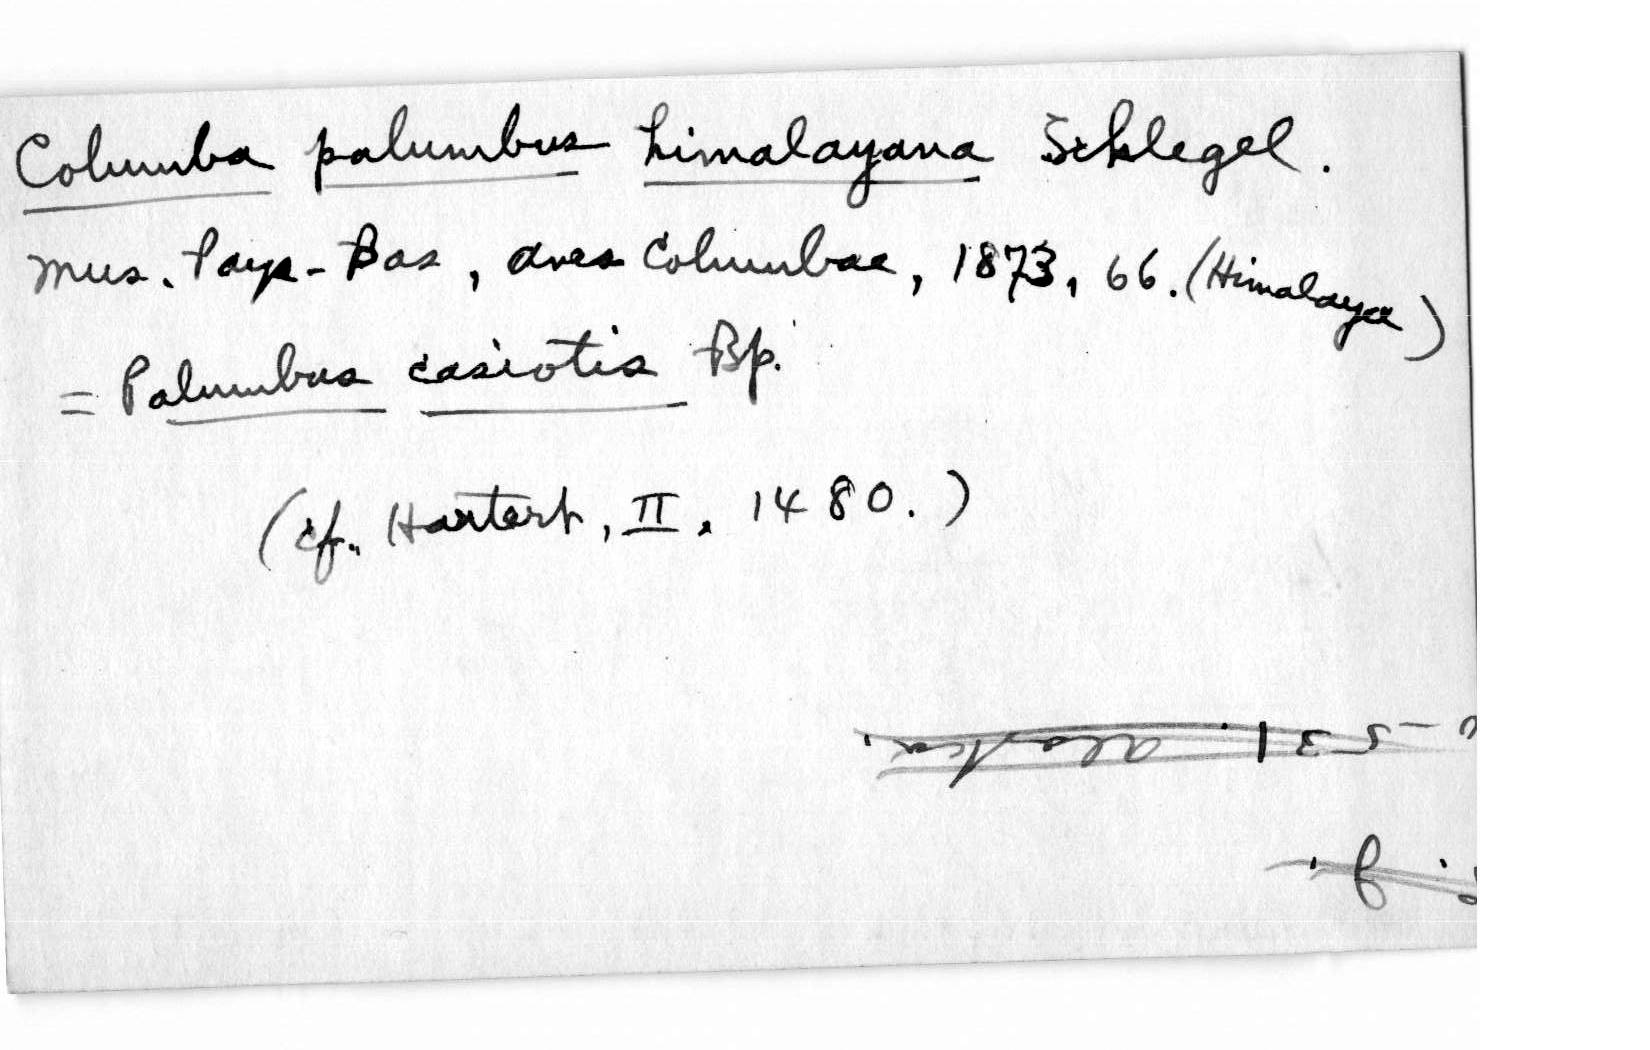 Columba palumbus himalayana Schlegel.
Mus. Pays-Bas, Aves Columbae, 1873, 66. (Himalaya)
= Palumbus casiotis Bp.
(cf. Hartert, II, 1480.)
-531. Alaska.